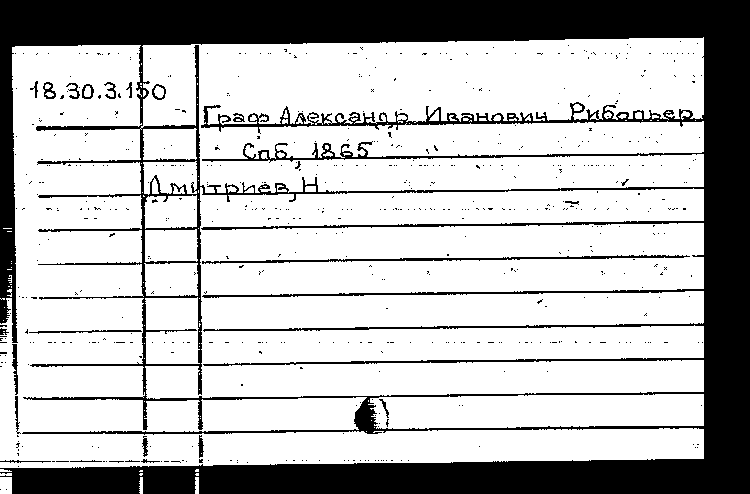 18.30.3.150
Граф Александр Иванович Рибопьер.
Спб., 1865
Дмитриев, Н.